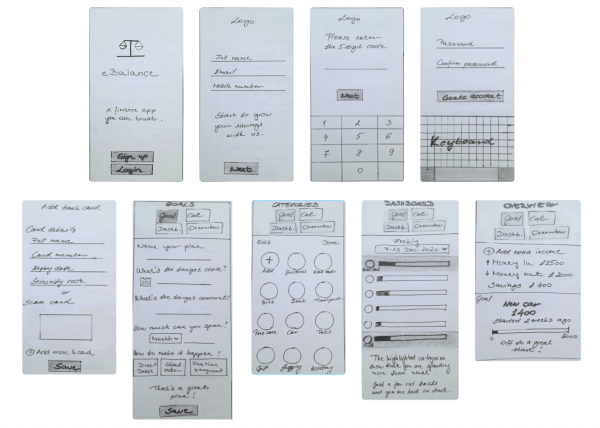 eBalance
A finance app
you can trust.
Sign up
Login
Logo
Full name
Email
Mobile number
Start to grow
your savings
with us.
Next
Logo
Please enter
the 5 digit code
Next
1 2 3
4 5 6
7 8 9
0
Logo
Password
Confirm password
Create account
Keyboard
Add bank card
Card details
Full name
Card number
Expiry date
Security code
or
Scan card
Add more card
Save
GOALS
Goal Cat.
Dashb. Overview
Name your plan
What's the target date?
What's the target amount?
How much can you spare?
Month
How to make it happen?
Direct
Debit
That's a great
plan!
Save
CATEGORIES
Goal Cat.
Dashb. Overview
Edit Done
Add
Bills
Car
Gift
DASHBOARD
Goal Cat.
Dashb. Overview
Weekly
7-13 Dec 2020
The highlighted categories
show that you are spending
more than usual
Just a few cut backs
and you are back on track.
OVERVIEW
Goal Cat.
Dashb. Overview
Add extra income
Money in £2500
Money out £2000
Savings £400
Goal
New car
£400
started 2 weeks ago
0
Off to a great
start!